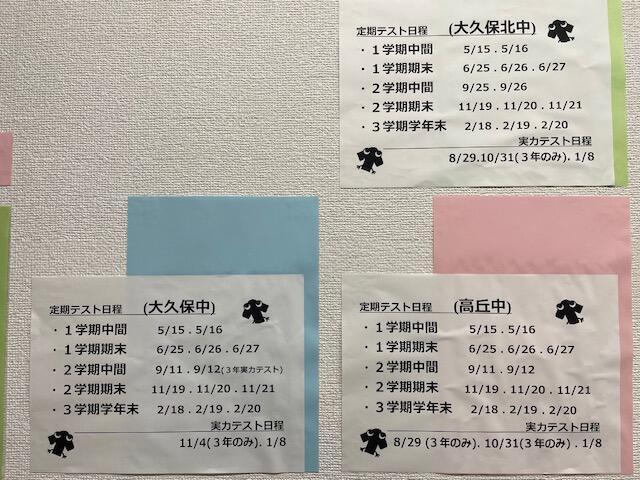 定期テスト日程 (大久保北中)
・1学期中間 5/15 . 5/16
・1学期期末 6/25 . 6/26 . 6/27
・2学期中間 9/25 . 9/26
・2学期期末 11/19 . 11/20 . 11/21
・3学期学年末 2/18 . 2/19 . 2/20
実力テスト日程
8/29.10/31(3年のみ). 1/8
定期テスト日程 (大久保中)
・1学期中間 5/15 . 5/16
・1学期期末 6/25 . 6/26 . 6/27
・2学期中間 9/11 . 9/12(3年実力テスト)
・2学期期末 11/19 . 11/20 . 11/21
・3学期学年末 2/18 . 2/19 . 2/20
実力テスト日程
11/4(3年のみ). 1/8
定期テスト日程 (高丘中)
・1学期中間 5/15 . 5/16
・1学期期末 6/25 . 6/26 . 6/27
・2学期中間 9/11 . 9/12
・2学期期末 11/19 . 11/20 . 11/21
・3学期学年末 2/18 . 2/19 . 2/20
実力テスト日程
8/29 (3年のみ). 10/31(3年のみ). 1/8